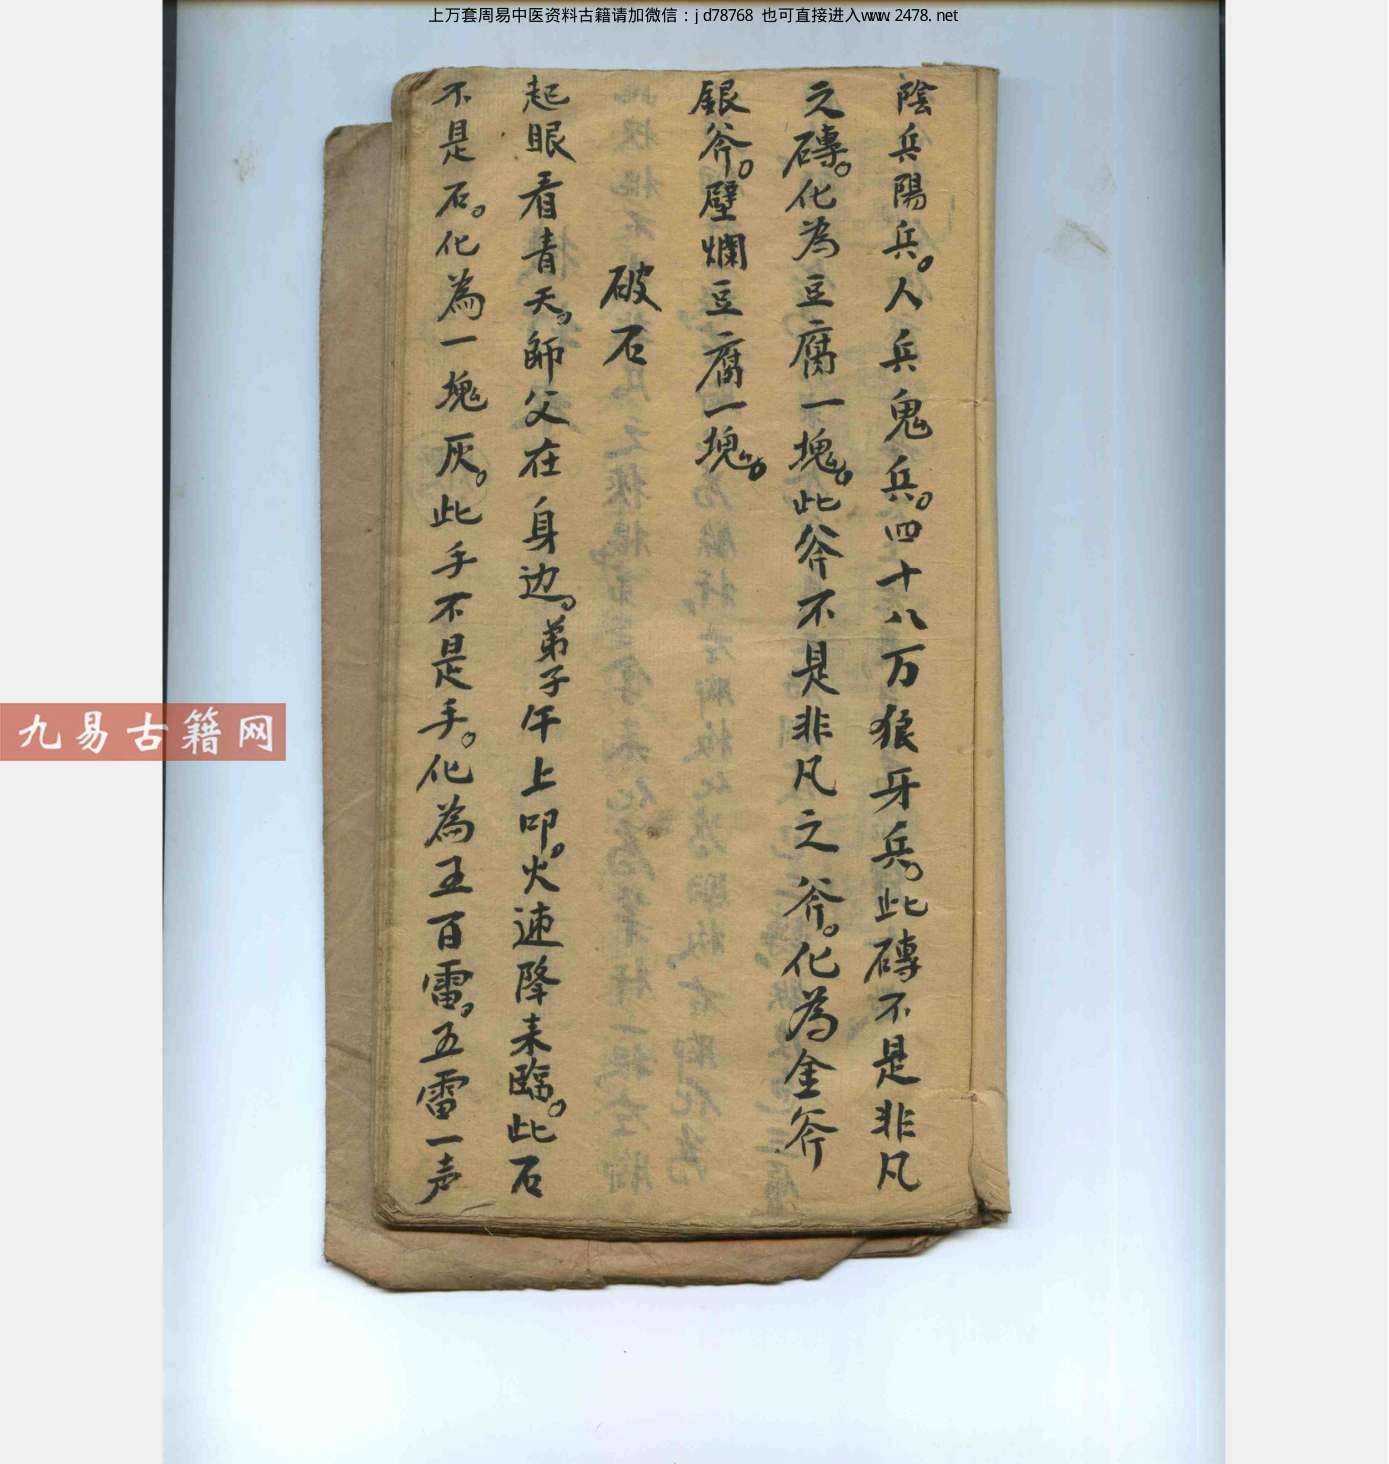 上万套周易中医资料古籍请加微信：jd78768 也可直接进入www.2478.net
陰兵陽兵。人兵鬼兵。四十八万狼牙兵。此磚不是非凡
之磚。化為豆腐一塊。此斧不是非凡之斧。化為金斧
銀斧。壁爛豆腐一塊。
破石
起眼看青天。師父在身边。弟子午上叩。火速降来臨。此石
不是石。化為一塊灰。此手不是手。化為五百雷。五雷一声
九易古籍网